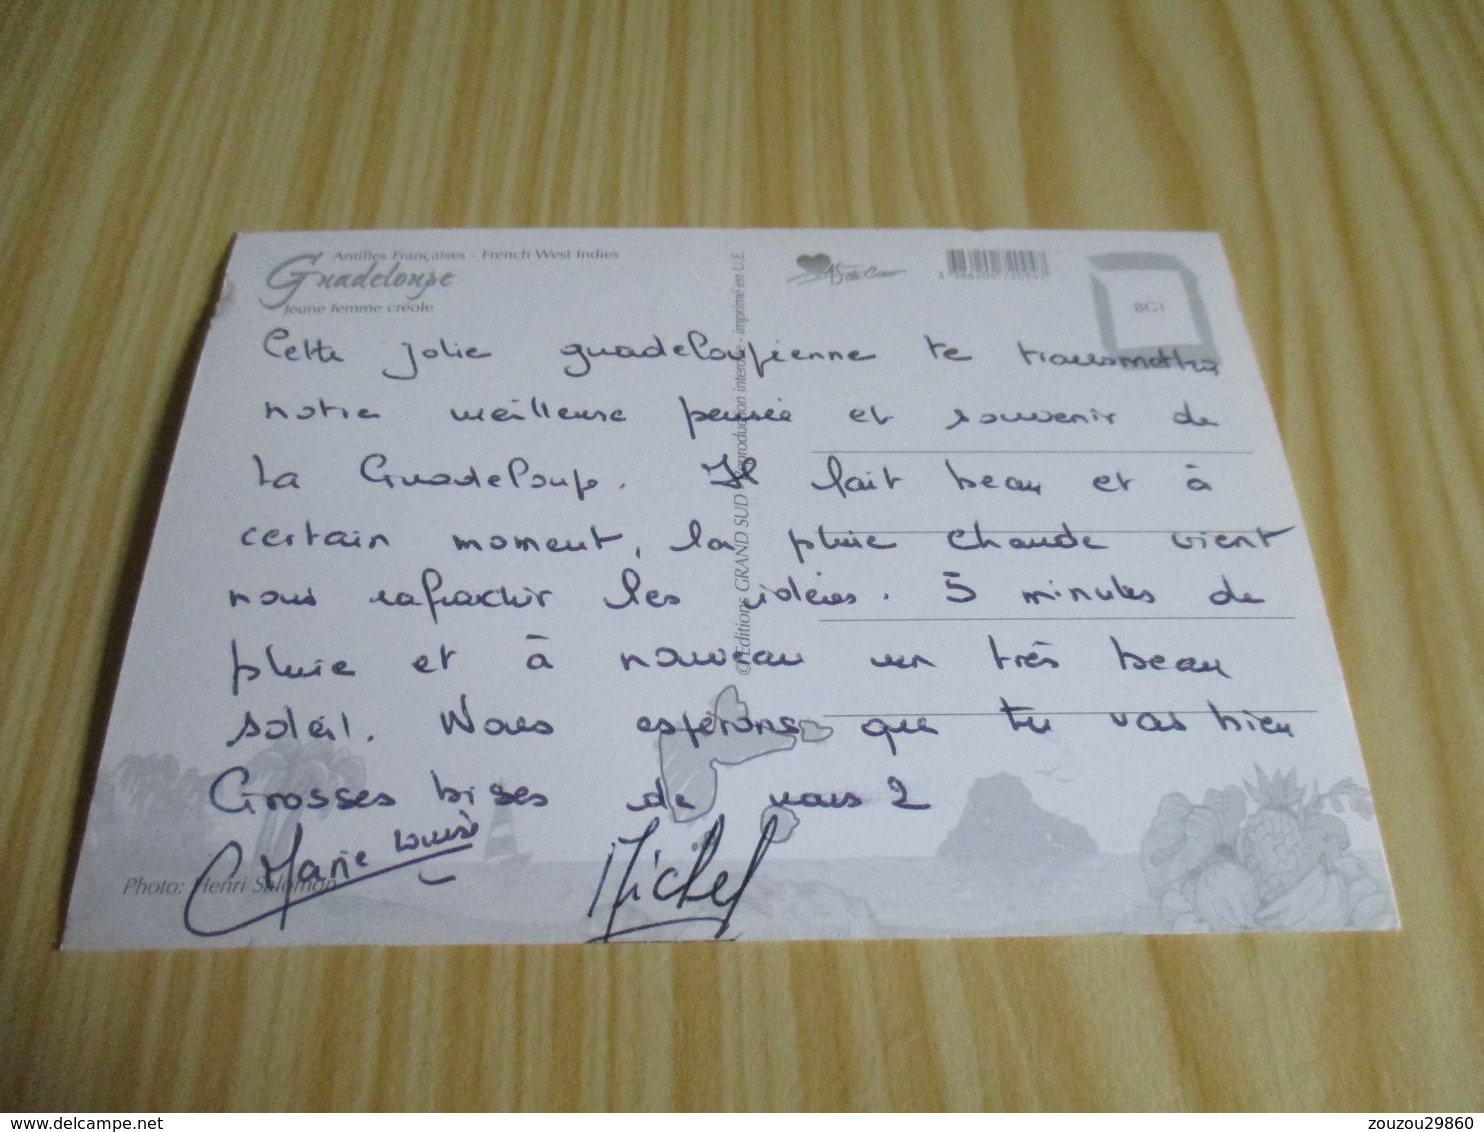 Antilles Françaises - French West Indies
Guadeloupe
Jeune femme créole
BG1
Cette jolie guadeloupienne te transmettra
notre meilleure pensée et souvenir de
La Guadeloupe. Il fait beau et à
certain moment, la pluie chaude vient
nous rafraichir les idées. 5 minutes de
pluie et à nouveau un très beau
soleil. Nous espérons que tu vas bien
Grosses bises de nous 2
Marie Louise
Michel
Photo: Henri Salomon
© Editions GRAND SUD - Reproduction interdite - imprimé en U.E
delcampe.net
zouzou29860